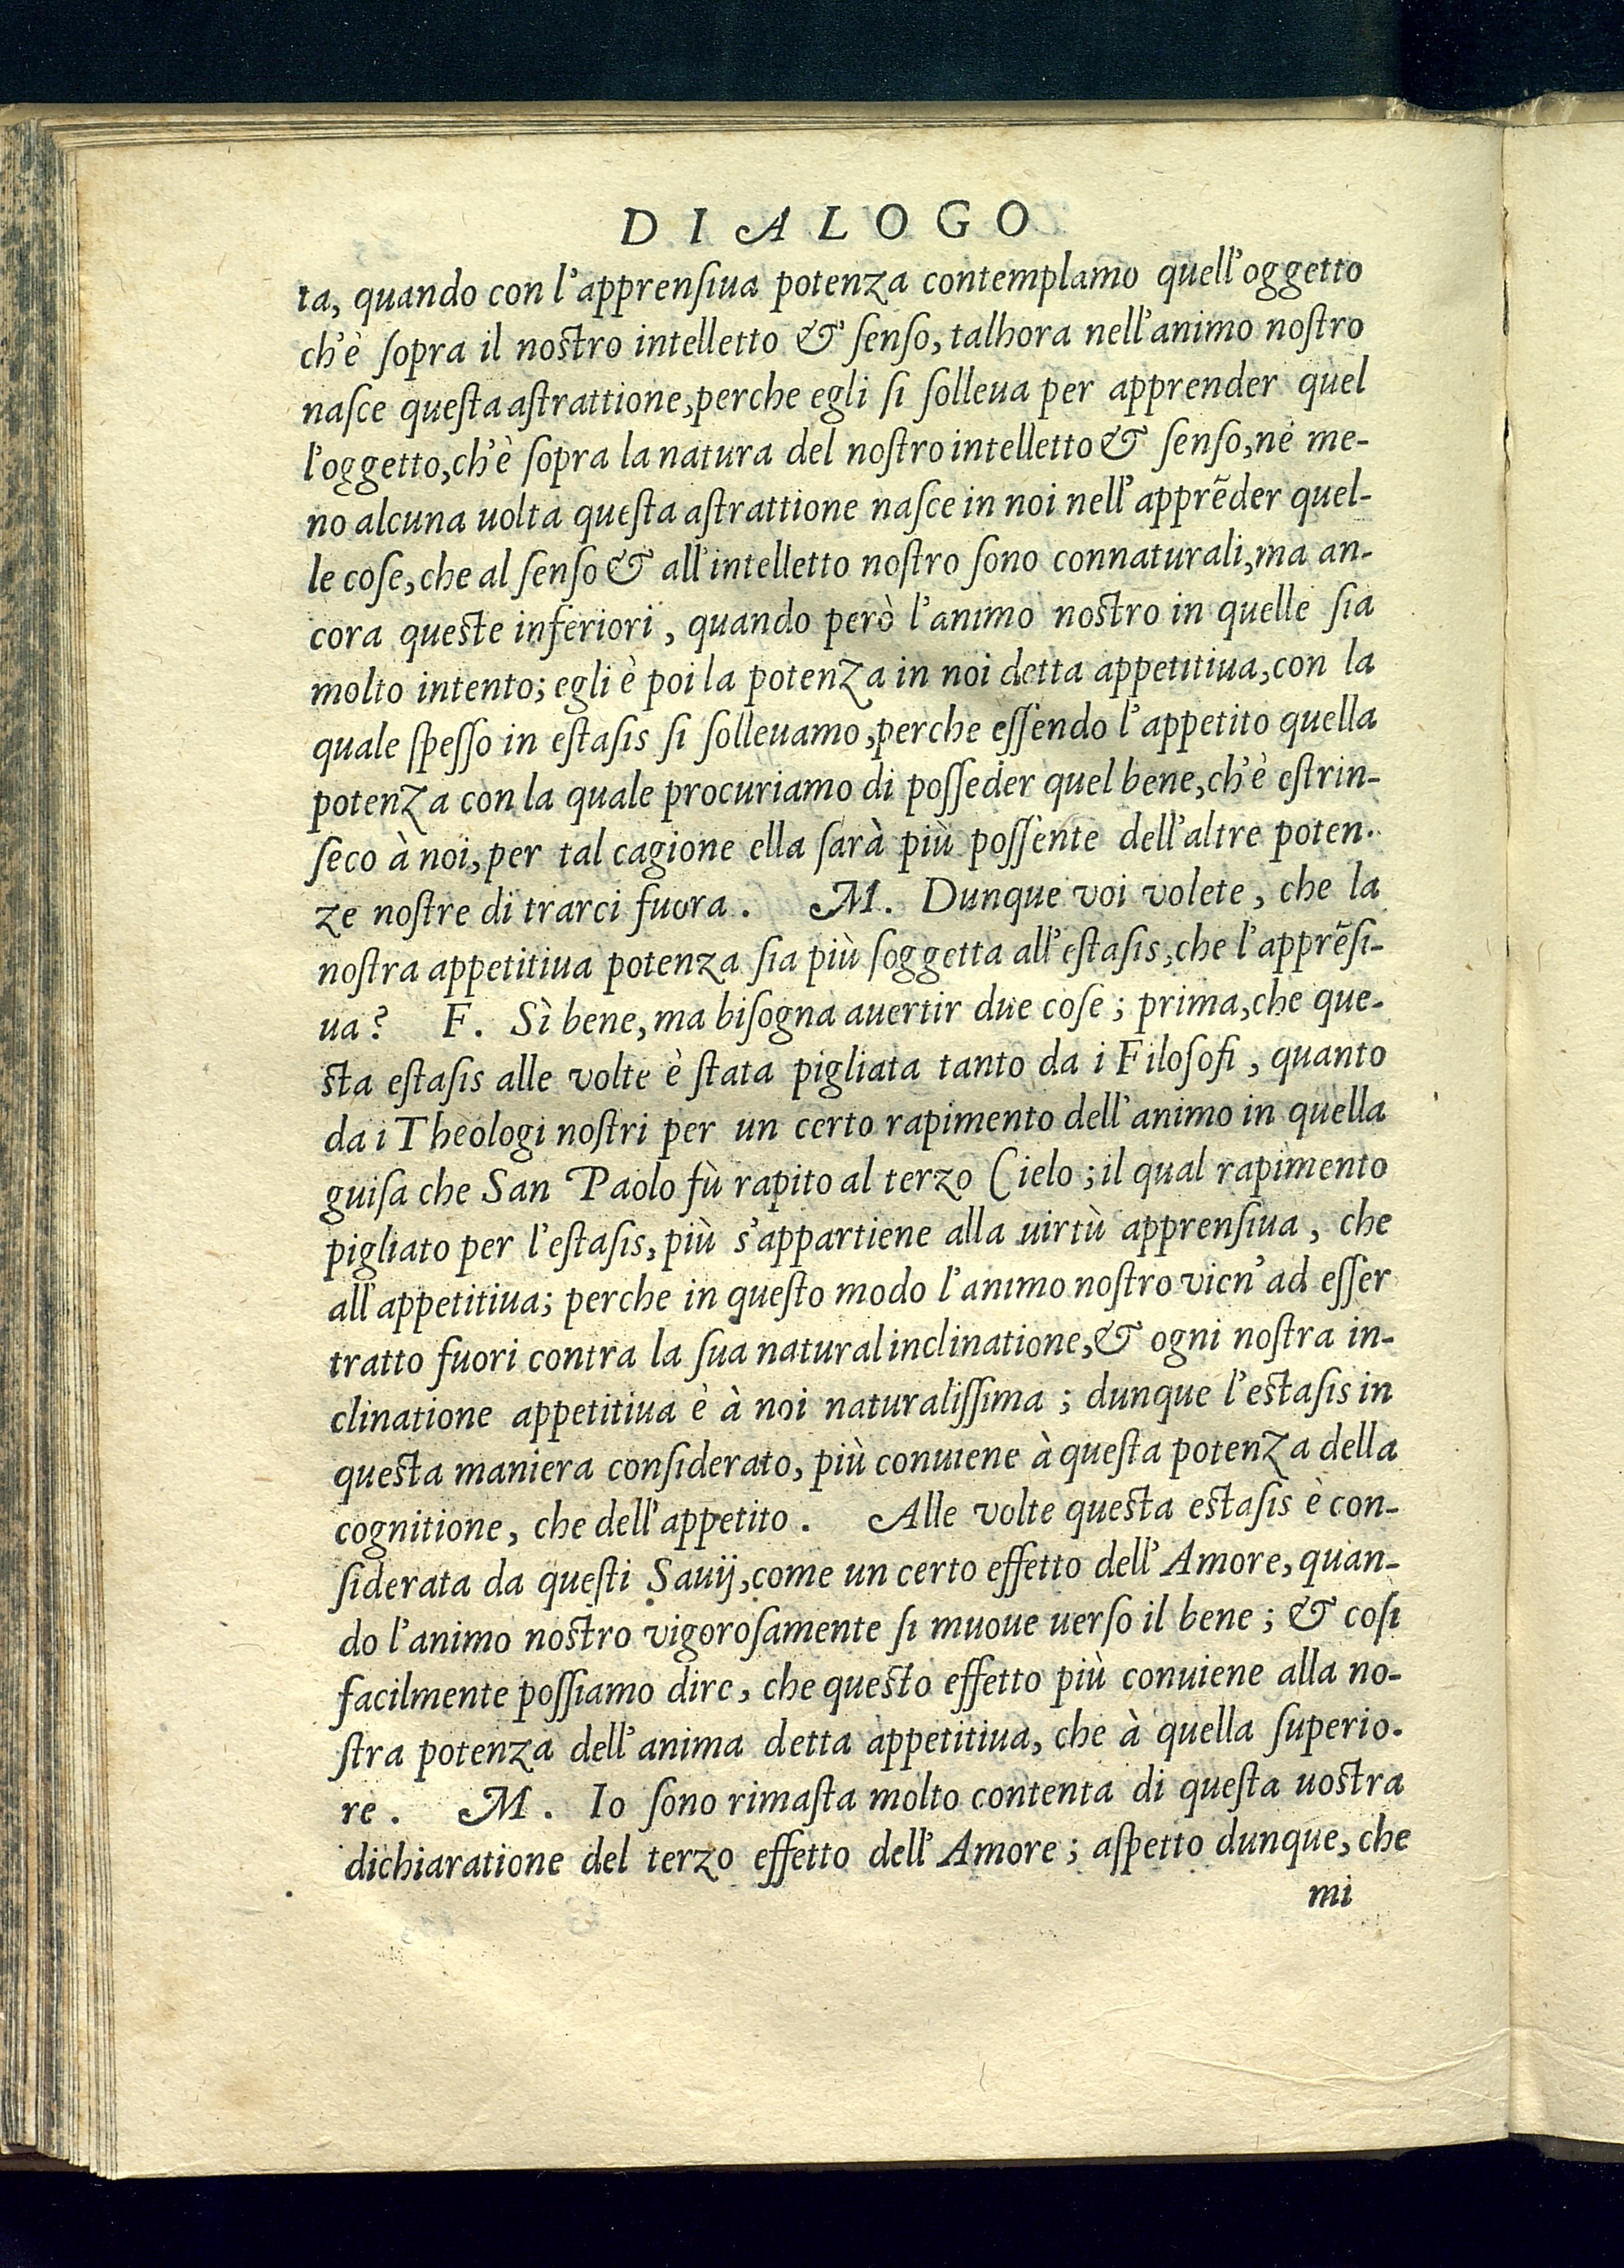 DIALOGO
ta, quando con l'apprenſiua potenza contemplamo quell'oggetto
ch'è ſopra il noſtro intelletto & ſenſo, talhora nell'animo noſtro
naſce queſta aſtrattione, perche egli ſi ſolleua per apprender quel
l'oggetto, ch'è ſopra la natura del noſtro intelletto & ſenſo, nè me-
no alcuna uolta queſta aſtrattione naſce in noi nell'apprẽder quel-
le coſe, che al ſenſo & all'intelletto noſtro ſono connaturali, ma an-
cora queſte inferiori, quando però l'animo noſtro in quelle ſia
molto intento; egli è poi la potenza in noi detta appetitiua, con la
quale ſpeſſo in eſtaſis ſi ſolleuamo, perche eſſendo l'appetito quella
potenza con la quale procuriamo di poſſeder quel bene, ch'è eſtrin-
ſeco à noi, per tal cagione ella ſarà più poſſente dell'altre poten-
ze noſtre di trarci fuora. M. Dunque voi volete, che la
noſtra appetitiua potenza ſia più ſoggetta all'eſtaſis, che l'apprẽſi-
ua? F. Sì bene, ma biſogna auertir due coſe; prima, che que-
ſta eſtaſis alle volte è ſtata pigliata tanto da i Filoſofi, quanto
da i Theologi noſtri per un certo rapimento dell'animo in quella
guiſa che San Paolo fù rapito al terzo Cielo; il qual rapimento
pigliato per l'eſtaſis, più s'appartiene alla uirtù apprenſiua, che
all'appetitiua; perche in queſto modo l'animo noſtro vien'ad eſſer
tratto fuori contra la ſua natural inclinatione, & ogni noſtra in-
clinatione appetitiua è à noi naturaliſſima; dunque l'eſtaſis in
queſta maniera conſiderato, più conuiene à queſta potenza della
cognitione, che dell'appetito. Alle volte queſta eſtaſis è con-
ſiderata da queſti Sauij, come un certo effetto dell'Amore, quan-
do l'animo noſtro vigoroſamente ſi muoue uerſo il bene; & coſi
facilmente poſſiamo dire, che queſto effetto più conuiene alla no-
ſtra potenza dell'anima detta appetitiua, che à quella ſuperio-
re. M. Io ſono rimaſta molto contenta di queſta uoſtra
dichiaratione del terzo effetto dell'Amore; aſpetto dunque, che
mi